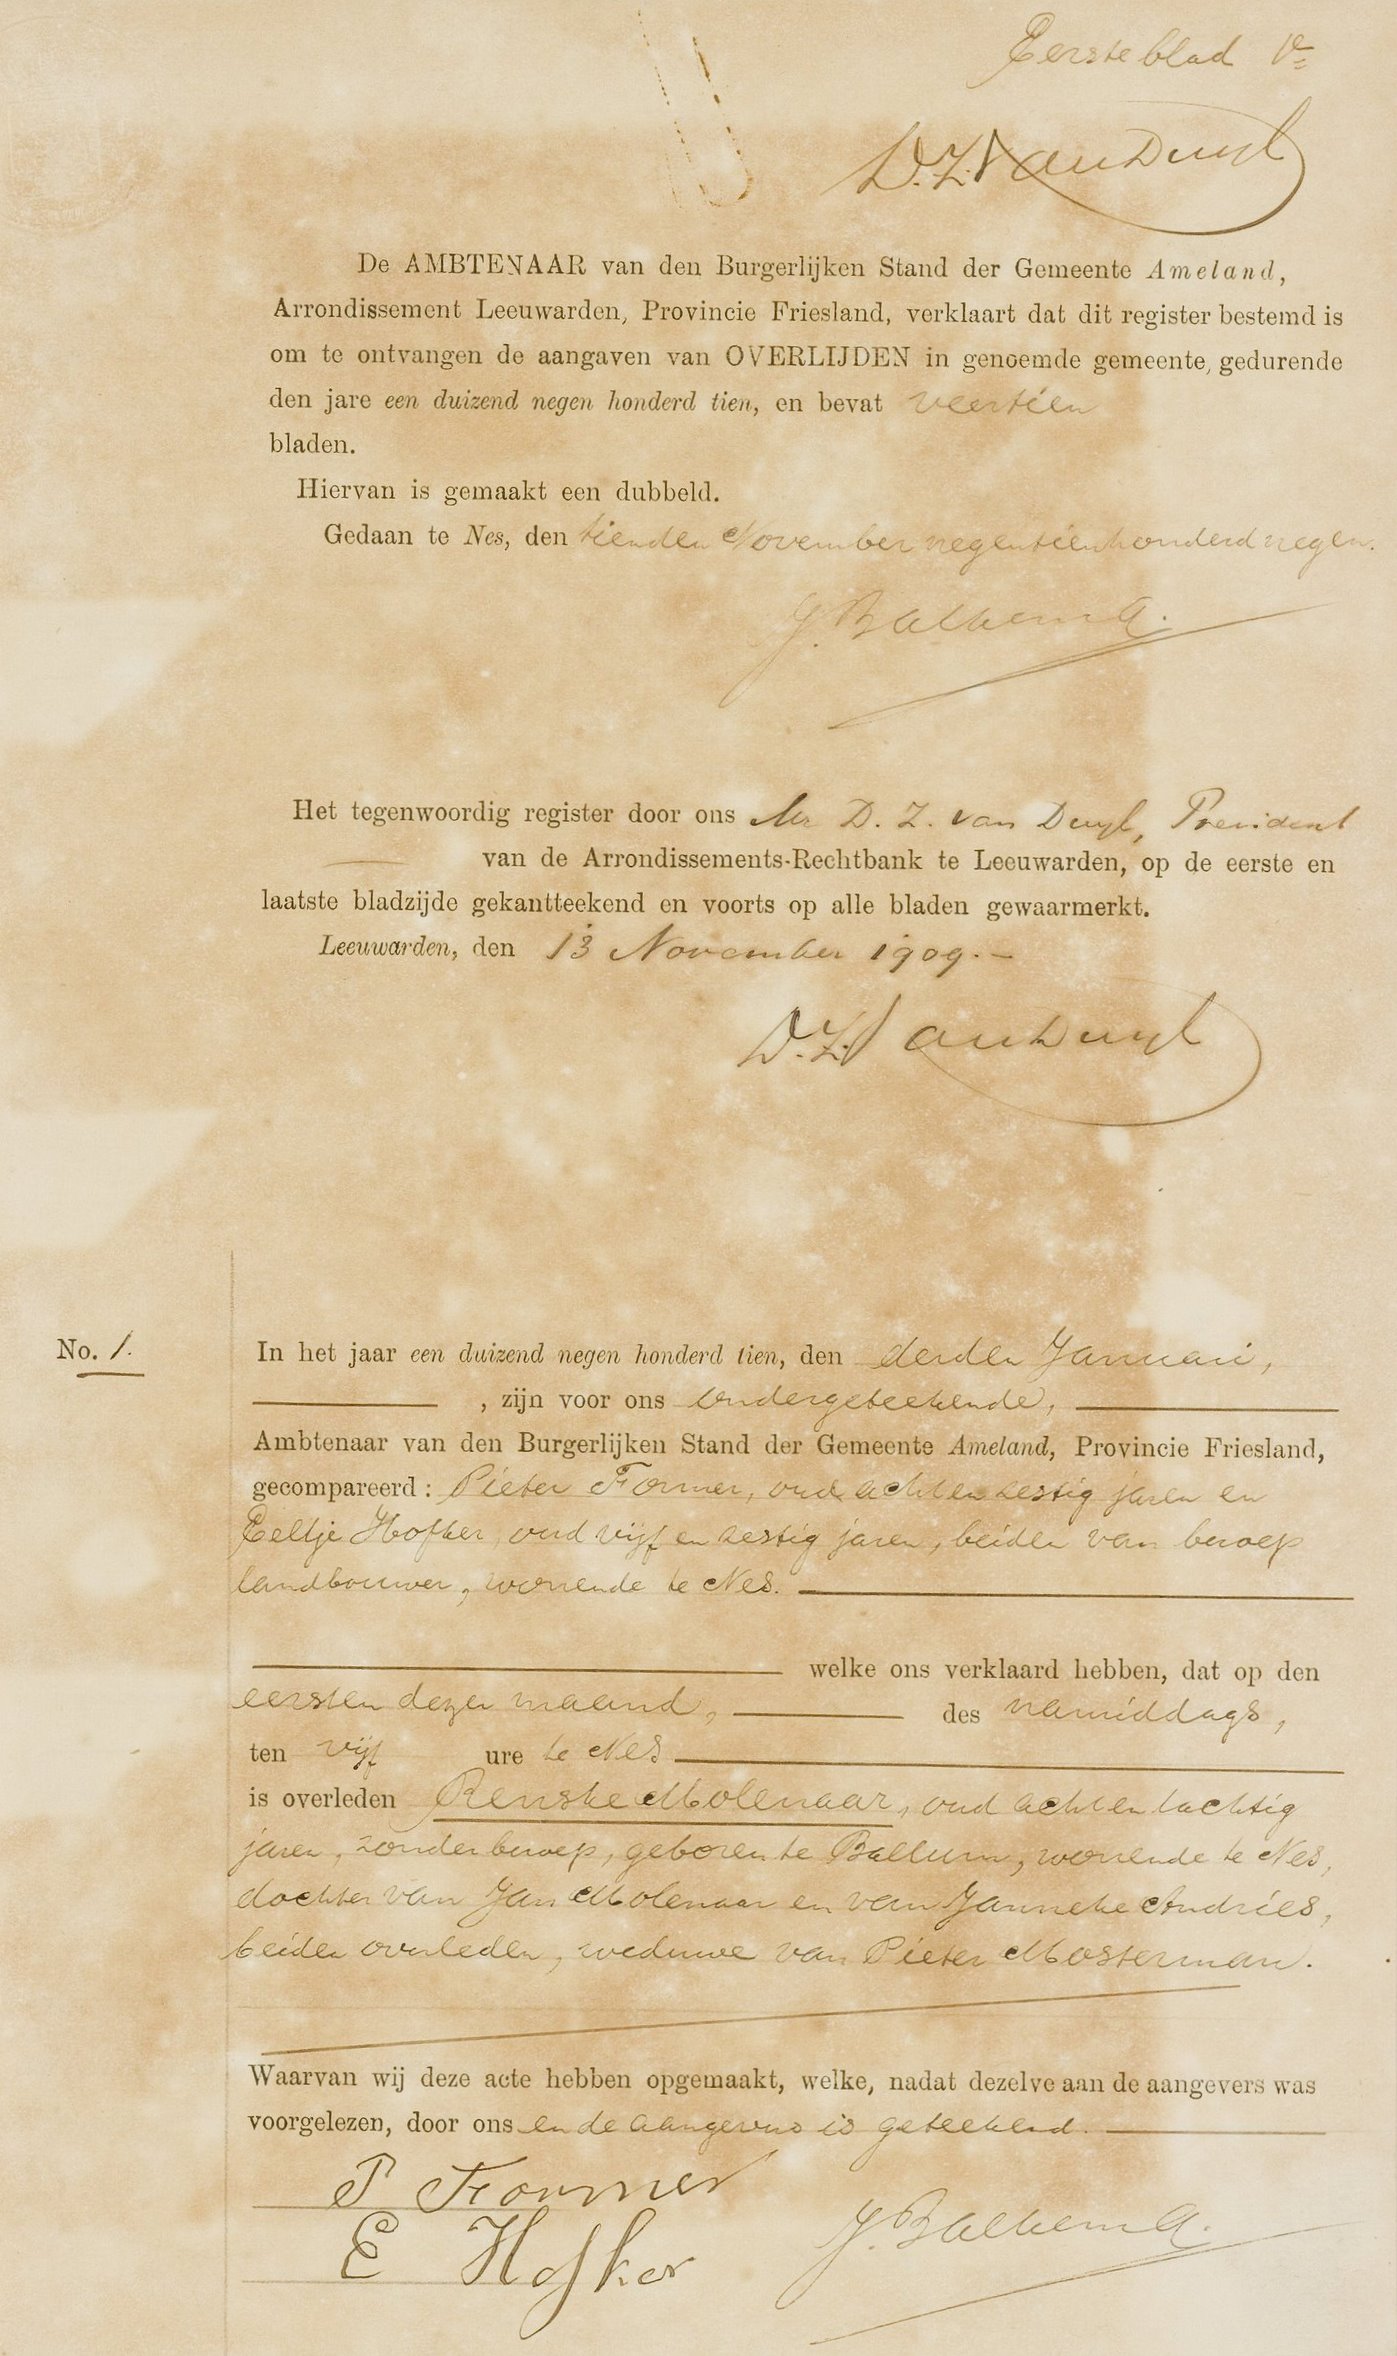 Eerste blad
D.Z. van Duyl
De AMBTENAAR van den Burgerlijken Stand der Gemeente Ameland,
Arrondissement Leeuwarden, Provincie Friesland, verklaart dat dit register bestemd is
om te ontvangen de aangaven van OVERLIJDEN in genoemde gemeente, gedurende
den jare een duizend negen honderd tien, en bevat veertien
bladen.
Hiervan is gemaakt een dubbeld.
Gedaan te Nes, den tienden November negentienhonderd negen.
J. Balkema.
Het tegenwoordig register door ons Mr D. Z. van Duyl, President
van de Arrondissements-Rechtbank te Leeuwarden, op de eerste en
laatste bladzijde gekantteekend en voorts op alle bladen gewaarmerkt.
Leeuwarden, den 13 November 1909.-
D.Z. van Duyl
No. 1.
In het jaar een duizend negen honderd tien, den derden Januari,
, zijn voor ons ondergeteekende,
Ambtenaar van den Burgerlijken Stand der Gemeente Ameland, Provincie Friesland,
gecompareerd: Pieter Former, oud achtenzestig jaren en
Eeltje Hofker, oud vijf en zestig jaren, beiden van beroep
landbouwer, wonende te Nes.
welke ons verklaard hebben, dat op den
eersten dezer maand, des namiddags,
ten vijf ure te Nes
is overleden Renske Molenaar, oud achtentachtig
jaren, zonder beroep, geboren te Ballum, wonende te Nes,
dochter van Jan Molenaar en van Janneke Andries,
beiden overleden, weduwe van Pieter Mosterman.
Waarvan wij deze acte hebben opgemaakt, welke, nadat dezelve aan de aangevers was
voorgelezen, door ons en de aangevers is geteekend.
P Former
E Hofker
J. Balkema.